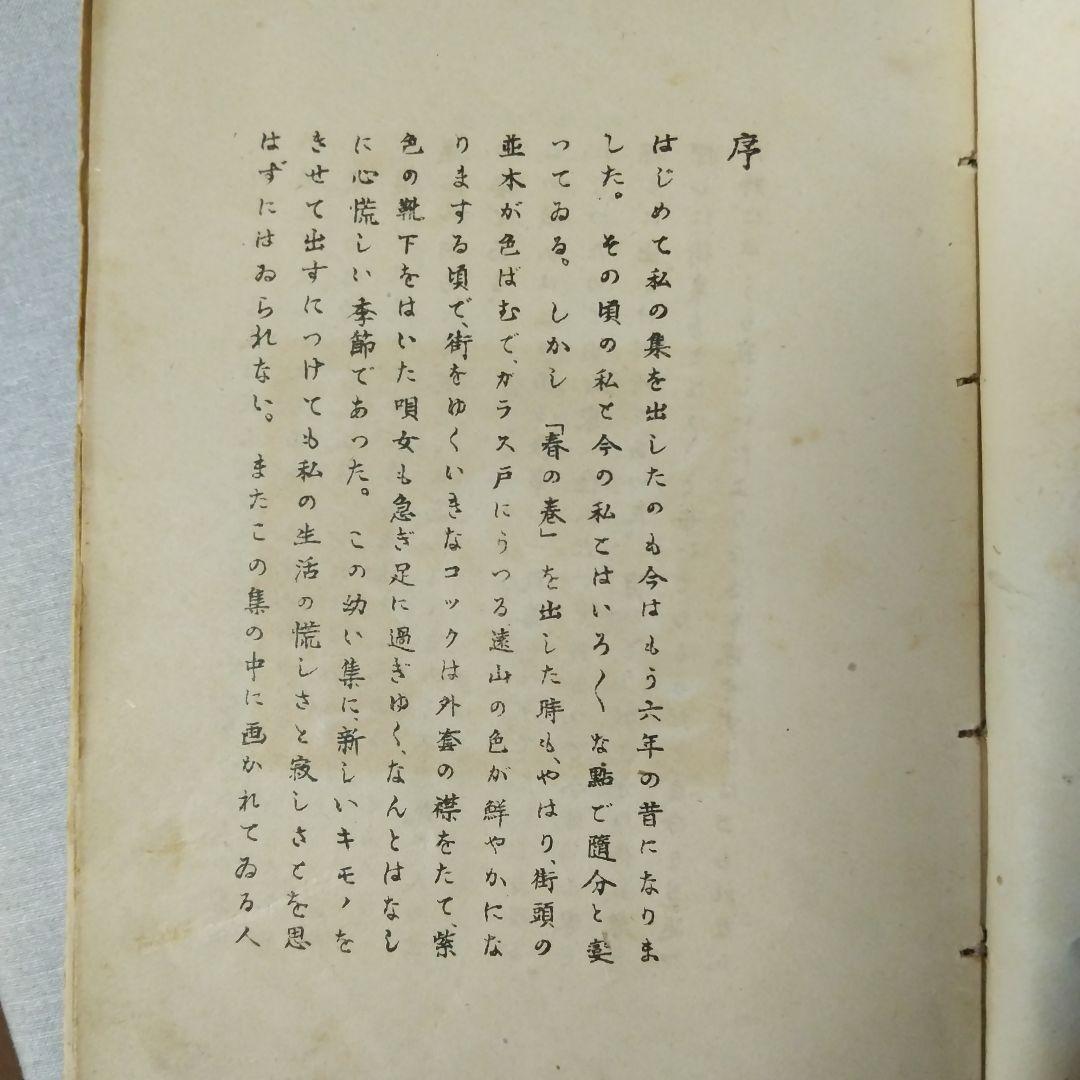 序
はじめて私の集を出したのも今はもう六年の昔になりま
した。その頃の私と今の私とはいろ〱な點で隨分と変
つてゐる。しかし「春の巻」を出した時も、やはり、街頭の
並木が色ばむで、ガラス戸にうつる遠山の色が鮮やかにな
りまする頃で、街をゆくいきなコックは外套の襟をたて、紫
色の靴下をはいた唄女も急ぎ足に過ぎゆく、なんとはなし
に心慌しい季節であつた。この幼い集に、新しいキモノを
きせて出すにつけても私の生活の慌しさと寂しさとを思
はずにはゐられない。またこの集の中に画かれてゐる人